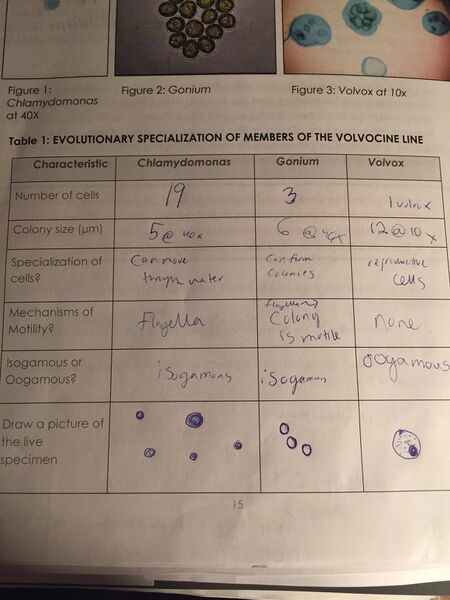 Figure 1:
Chlamydomonas
at 40X
Figure 2: Gonium
Figure 3: Volvox at 10x
Table 1: EVOLUTIONARY SPECIALIZATION OF MEMBERS OF THE VOLVOCINE LINE
Characteristic Chlamydomonas Gonium Volvox
Number of cells 19 3 1 volvox
Colony size (µm) 5 @ 40x 6 @ 40x 12 @ 10 x
Specialization of
cells?
Can move
through water
Can form
Colonies
reproductive
cells
Mechanisms of
Motility?
flagella
flagella →
Colony
is motile
none
Isogamous or
Oogamous?
isogamous
isogamous
oogamous
Draw a picture of
the live
specimen
15